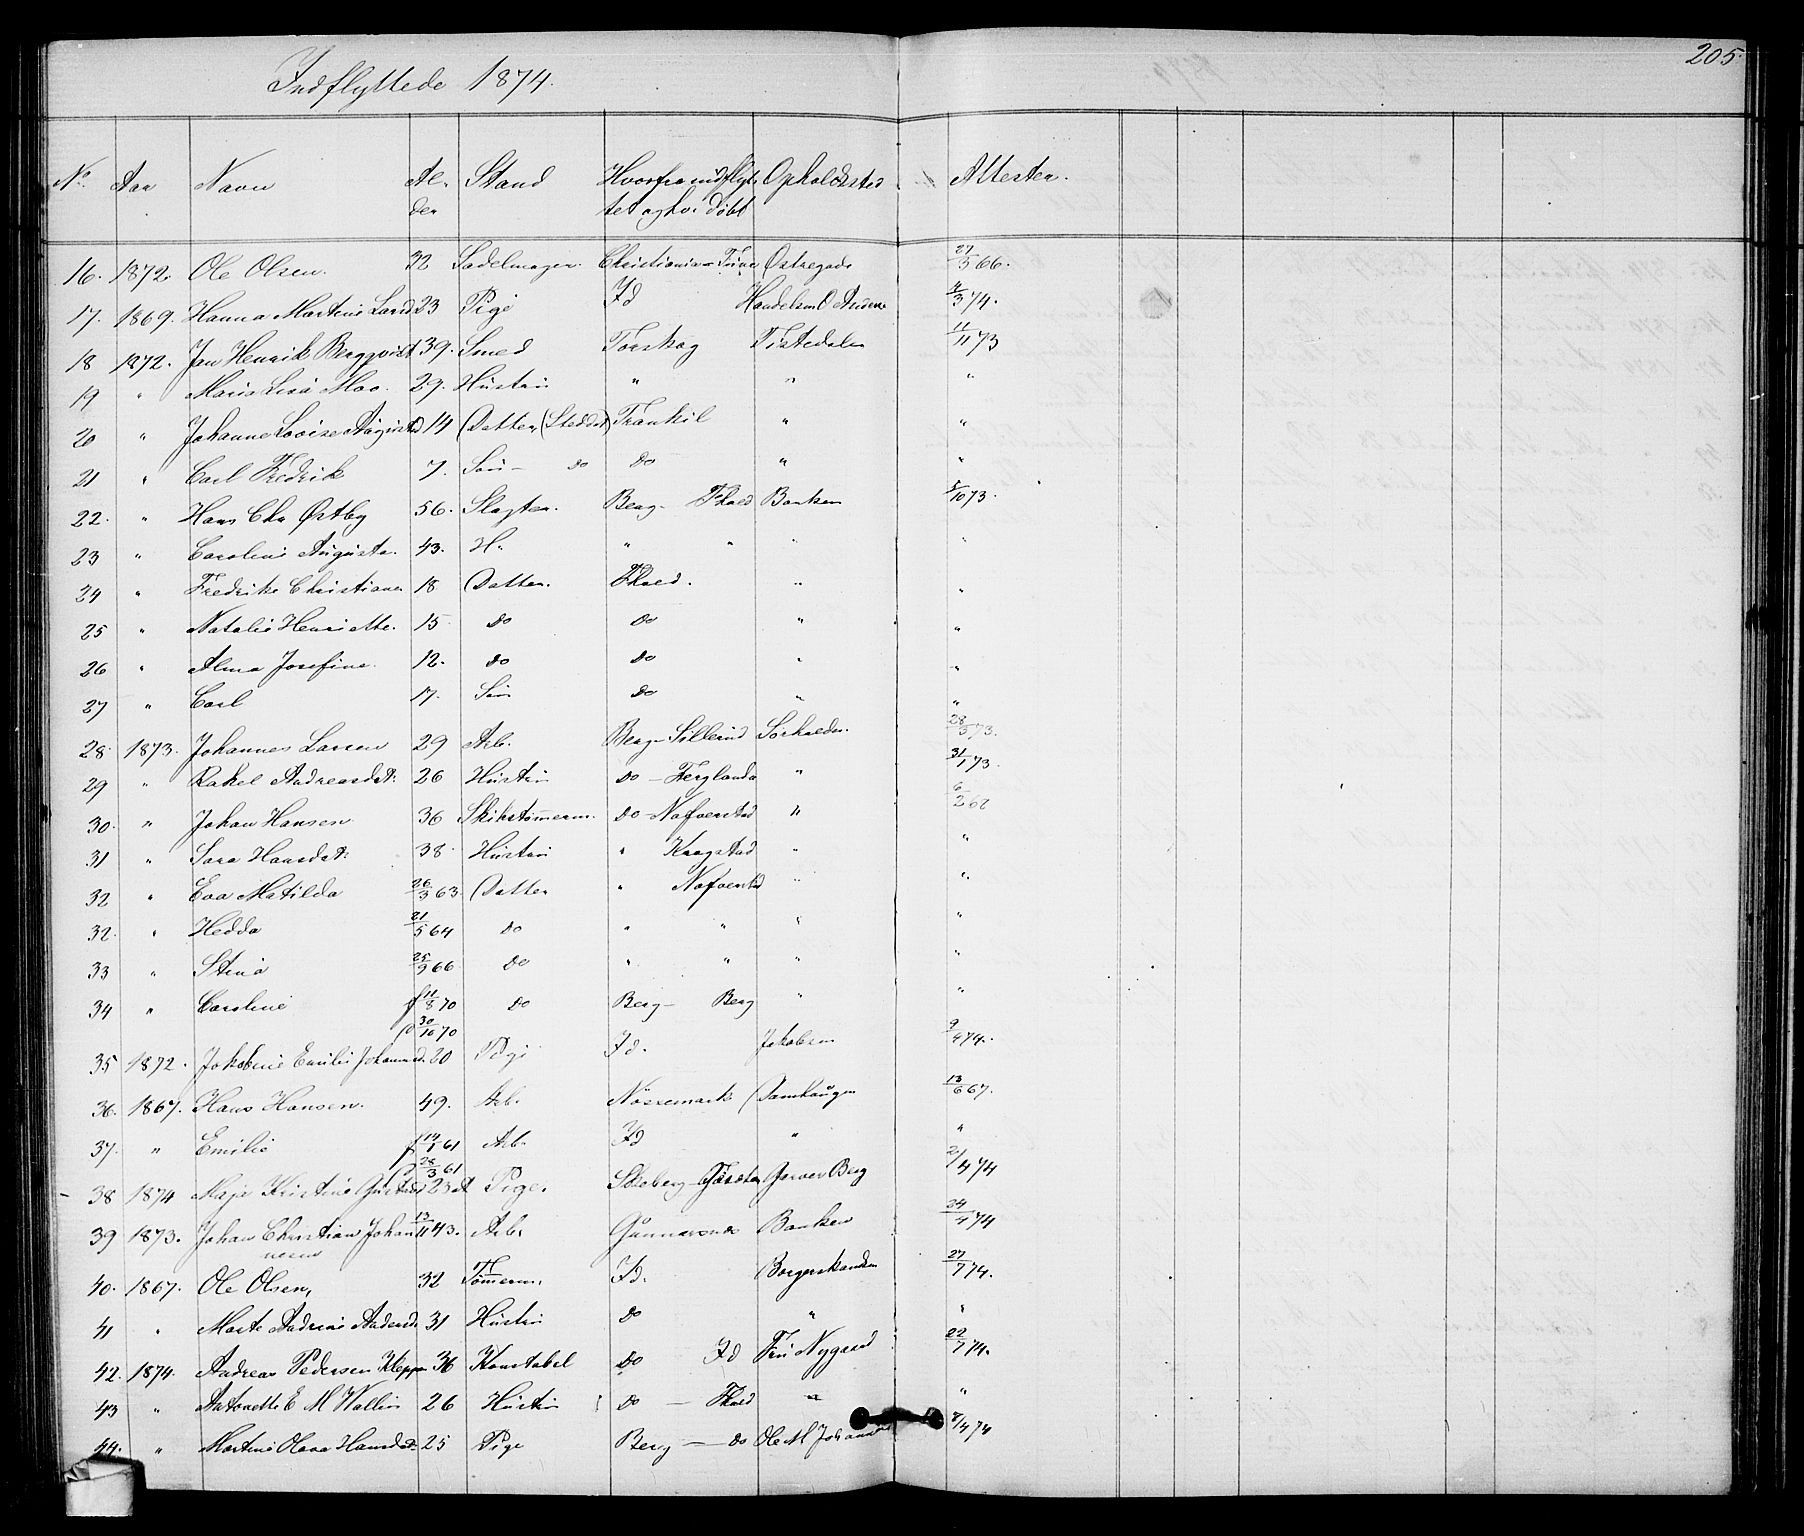 205.
Indflyttede 1874.
No. Aar Navn Al- Stand Hvorfra indflyt- Opholdssted Attester.
der tet og hvor døbt
16. 1872. Ole Olsen. 32 Sadelmager. Christiania - Østregade 27/5 66.
17. 1869. Hanna Martine 23 Pige Id Handelsm O Andersen 4/3 74.
18 1872. Jan Henrik Bergqvist 39. Smed Torskog Tistedalen 11/11 73
19 " Maria Lisa Moo. 29. Hustru " " "
20 " Johanne Lovise 14 Datter (Steddat) Trankil " "
21 " Carl Fredrik 7. Søn - do do " "
22. " Hans Chr Østby 56. Slagter. Berg - Fhald Banken 5/10 73.
23 " Caroline Augusta. 43. H. " " " "
24 " Fredrike Christiane 18 Datter. Fhald. " "
25 " Natalie Henriette. 15 do do " "
26 " Alma Josefine. 12. do do " "
27 " Carl 17. Søn do " "
28. 1873. Johannes Larsen 29 Arb. Berg - Sørhalden. 28/5 73.
29 " Rakel Andreasdt: 26 Hustru do - " 31/1 73.
30. " Johan Hansen 36 Skibstømerm. do - Nafverstad " 6/2 62
31 " Sara Hansdt: 38. Hustru " Krogstad " "
32 " Eva Matilda 26/3 63. Datter " Nafverstad " "
32. " Hedda 21/5 64 do " " " "
33 " Stina 25/9 66 do " " " "
34 " Caroline f 11/8 70 do Berg - Berg " "
d 30/10 70
35 1872. Jakobine Emilie Johannsd. 20 Pige Id. Jakobsen 9/4 74.
36. 1867. Hans Hansen. 49. Arb. Nössemark Damhaugen 13/6 67.
37. " Emilie f 14/1 61 Arb. Id " "
d 28/3 61
38 1874 Maja Kristine 23 Pige. Skeberg - Garver Berg 2/4 74
39 1873. Johan Christian Johan 13/11 43. Arb. Banken 24/4 74
nesen
40. 1867. Ole Olsen, 32 Tømerm. Id. Borgerskansen 27/7 74.
41 " Marte Andrine Andersd. 31 Hustru do " "
42. 1874. Andreas Pedersen Klepper 36 Konstabel do Id Fru Nygaard 22/7 74.
43 " Antonette E M Wallin 26 Hustru do - Fhald " "
44. " Martine Olava Hansdt: 25 Pige Berg - do Ole M Johannes 8/4 74